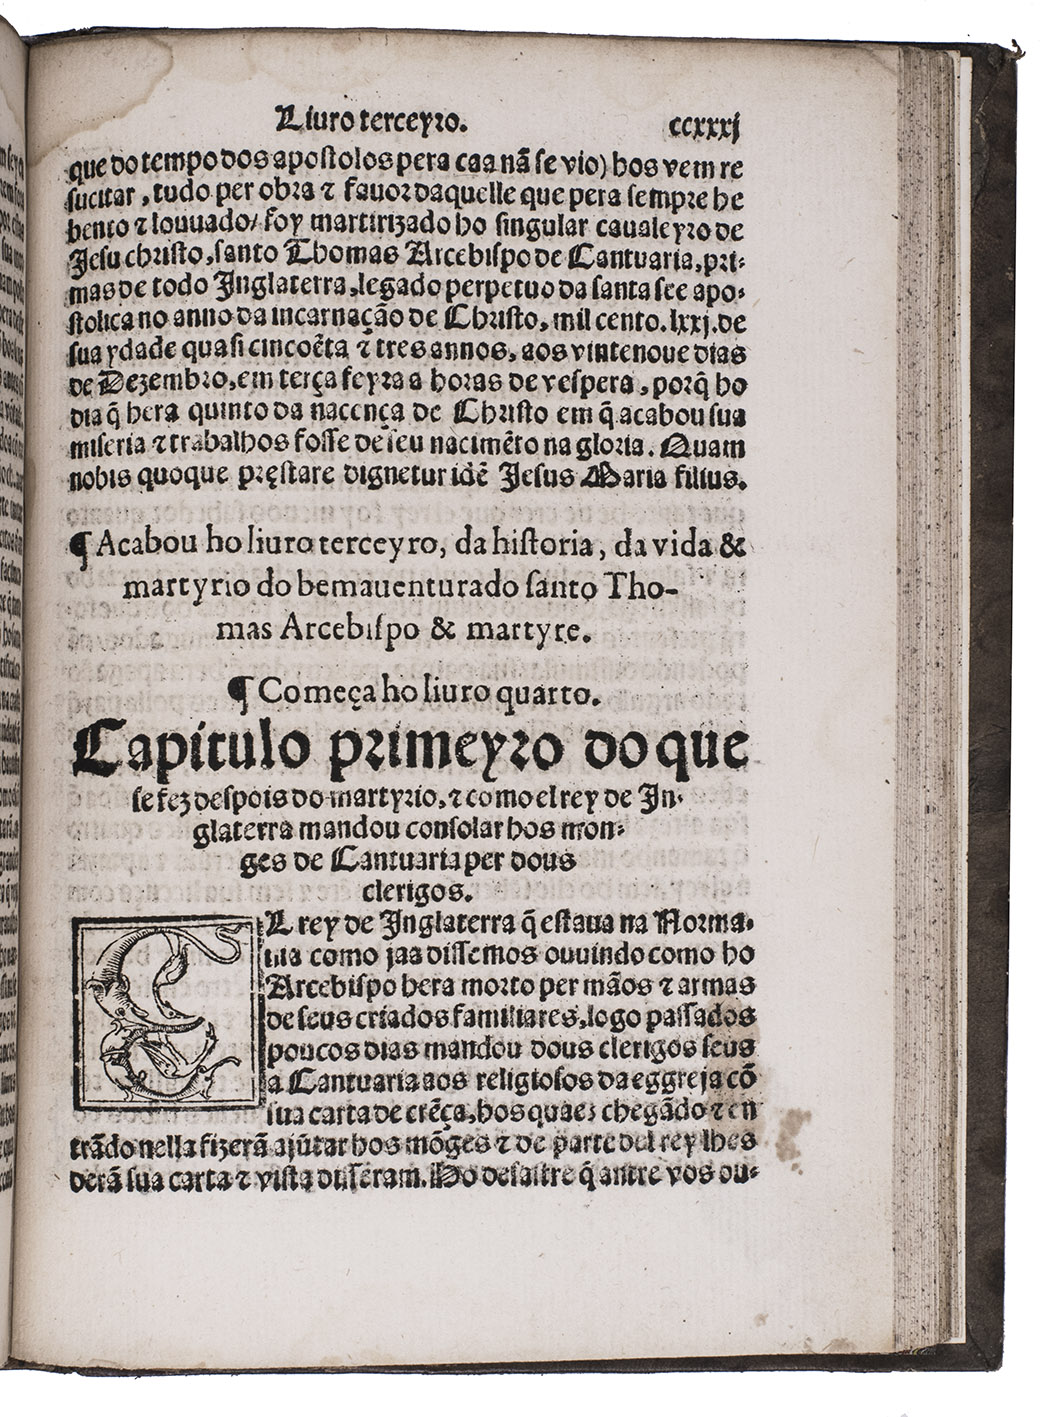 Liuro terceyro. ccxxxj
que do tempo dos apostolos pera caa nã se vio) hos vem re
sucitar, tudo per obra ⁊ fauor daquelle que pera sempre he
bento ⁊ louuado/ foy martirizado ho singular caualeyro de
Jesu christo, santo Thomas Arcebispo de Cantuaria, pri-
mas de todo Inglaterra, legado perpetuo da santa see apo-
stolica no anno da incarnação de Christo, mil cento. lxxj. de
sua ydade quasi cincoẽta ⁊ tres annos, aos vintenoue dias
de Dezembro, em terça feyra a horas de vespera, porq̃ ho
dia q̃ hera quinto da nacença de Christo em q̃ acabou sua
miseria ⁊ trabalhos fosse de seu nacimẽto na gloria. Quam
nobis quoque pręstare dignetur idẽ Jesus Maria filius.
¶ Acabou ho liuro terceyro, da historia, da vida &
martyrio do bemauenturado santo Tho-
mas Arcebispo & martyre.
¶ Começa ho liuro quarto.
Capitulo primeyro do que
se fez despois do martyrio, ⁊ como el rey de In-
glaterra mandou consolar hos mon-
ges de Cantuaria per dous
clerigos.
EL rey de Inglaterra q̃ estaua na Norma-
nia como jaa dissemos ouuindo como ho
Arcebispo hera morto per mãos ⁊ armas
de seus criados familiares, logo passados
poucos dias mandou dous clerigos seus
a Cantuaria aos religiosos da eggreja cõ
sua carta de crẽça, hos quaes chegãdo ⁊ en
trãdo nella fizerã ajũtar hos mõges ⁊ de parte del rey lhes
derã sua carta ⁊ vista disseram. Ho desastre q̃ antre vos ou-